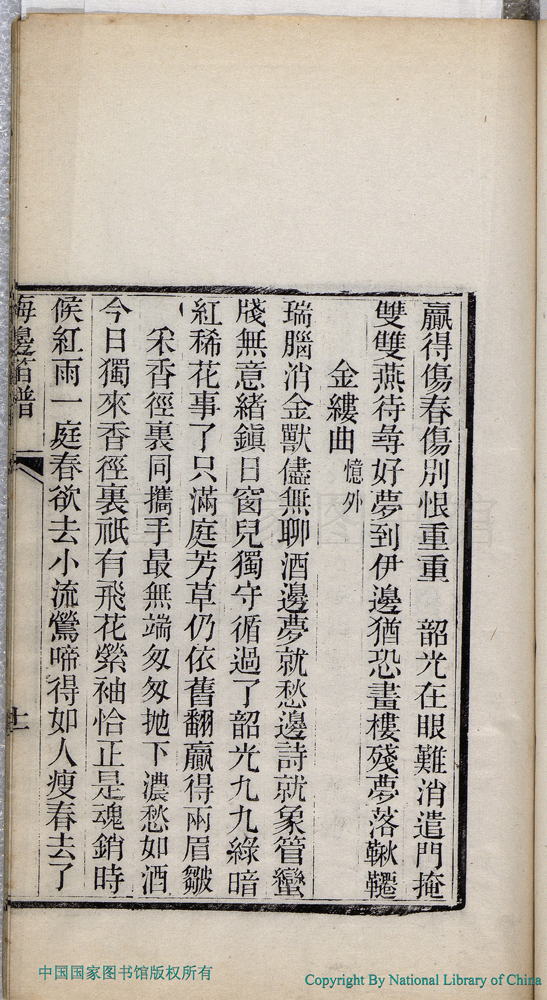 贏得傷春傷別恨重重　韶光在眼難消遣門掩
雙雙燕待尋好夢到伊邊猶恐畫樓殘夢落鞦韆
金縷曲 憶外
瑞腦消金獸儘無聊酒邊夢就愁邊詩就象管蠻
牋無意緒鎮日窗兒獨守循過了韶光九九綠暗
紅稀花事了只滿庭芳草仍依舊翻贏得兩眉皺
采香徑裏同攜手最無端匆匆拋下濃愁如酒
今日獨來香徑裏祇有飛花縈袖恰正是魂銷時
候紅雨一庭春欲去小流鶯啼得如人瘦春去了
海邊笛譜
十一
中国国家图书馆版权所有
Copyright By National Library of China